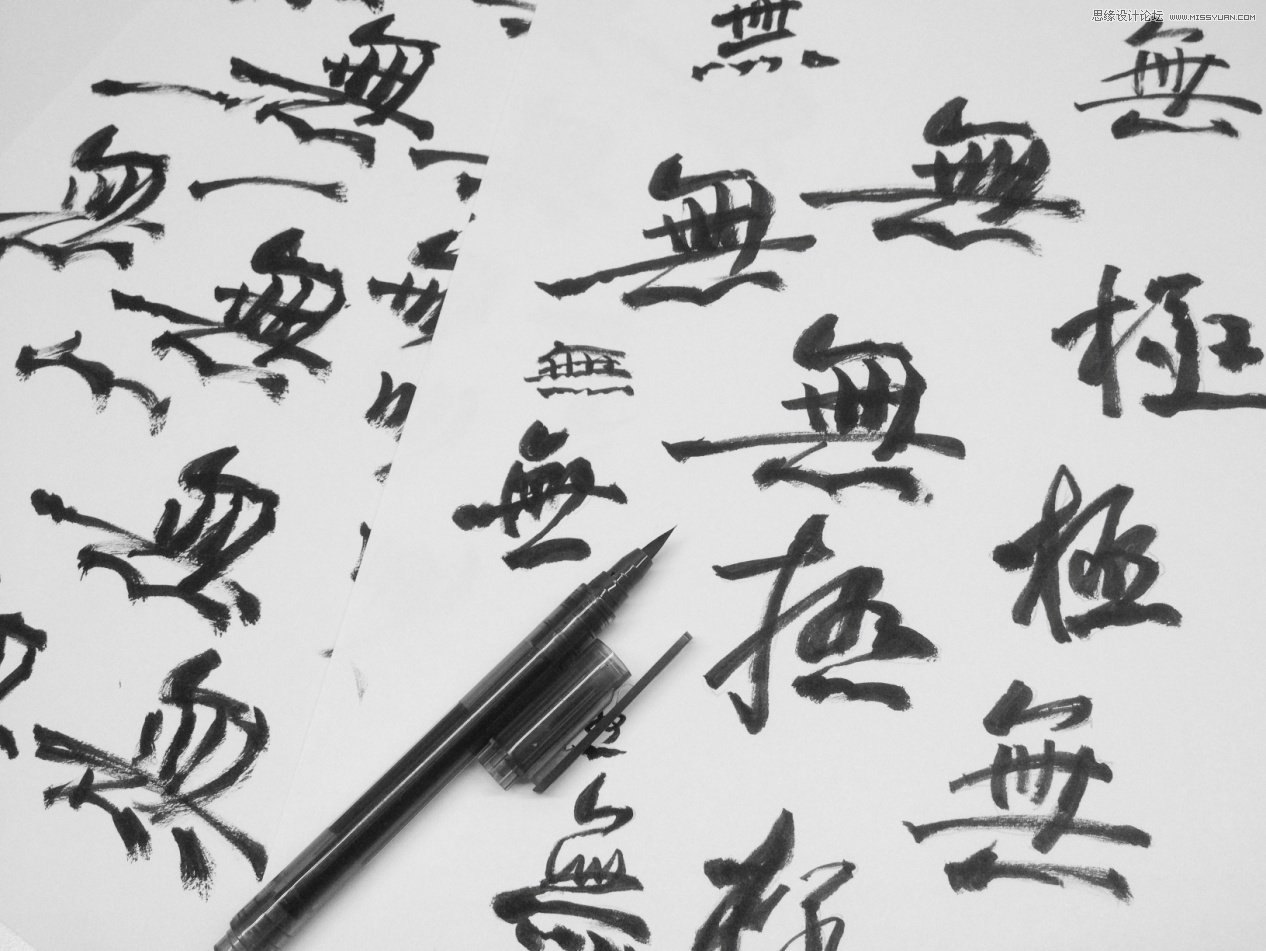 思缘设计论坛 WWW.MISSYUAN.COM
無
無
無
無
無
無
無
極
無
無
無
無
無
極
極
無
無
無